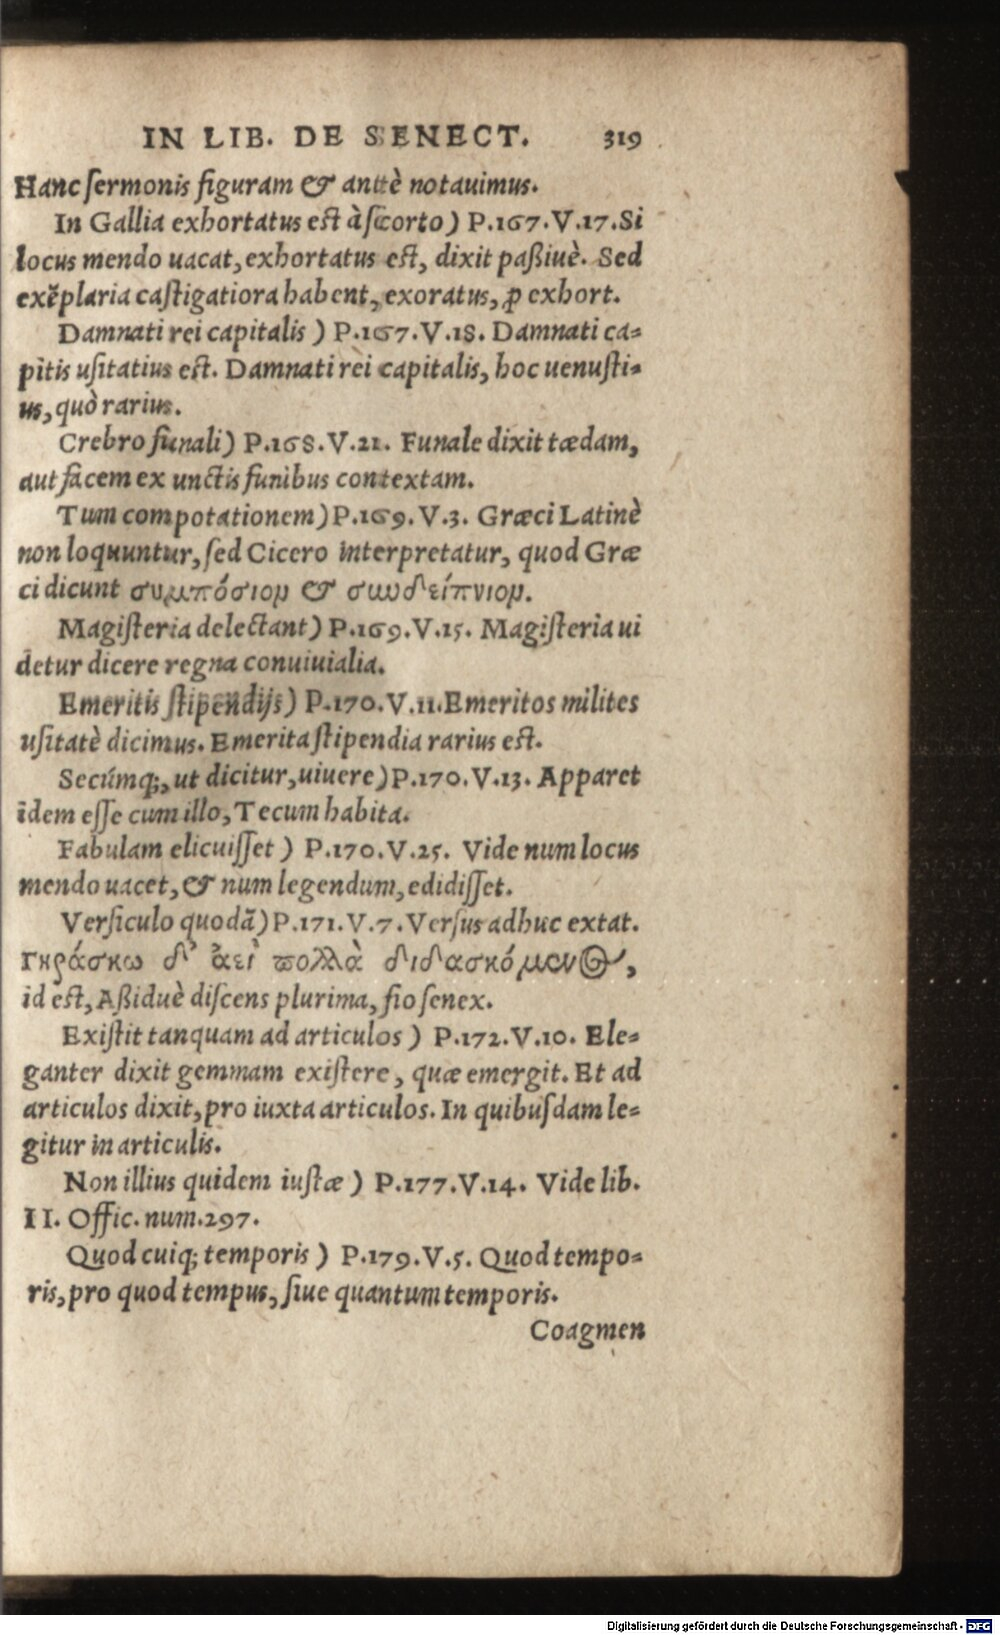 IN LIB. DE SENECT. 319
Hanc sermonis figuram & antè notauimus.
In Gallia exhortatus est à scorto) P.167.V.17. Si
locus mendo uacat, exhortatus est, dixit paßiuè. Sed
exẽplaria castigatiora habent, exoratus, ꝓ exhort.
Damnati rei capitalis) P.167.V.18. Damnati ca-
pitis usitatius est. Damnati rei capitalis, hoc uenusti-
us, quò rarius.
Crebro funali) P.168.V.21. Funale dixit tædam,
aut facem ex unctis funibus contextam.
Tum compotationem) P.169.V.3. Græci Latinè
non loquuntur, sed Cicero interpretatur, quod Græ
ci dicunt συμπόσιον & συνδείπνιον.
Magisteria delectant) P.169.V.15. Magisteria ui
detur dicere regna conuiuialia.
Emeritis stipendijs) P.170.V.11. Emeritos milites
usitatè dicimus. Emerita stipendia rarius est.
Secúmq;, ut dicitur, uiuere) P.170.V.13. Apparet
idem esse cum illo, Tecum habita.
Fabulam elicuisset) P.170.V.25. Vide num locus
mendo uacet, & num legendum, edidisset.
Versiculo quodã) P.171.V.7. Versus adhuc extat.
Γηράσκω δ' ἀεὶ πολλὰ διδασκόμενος,
id est, Aßiduè discens plurima, fio senex.
Existit tanquam ad articulos) P.172.V.10. Ele-
ganter dixit gemmam existere, quæ emergit. Et ad
articulos dixit, pro iuxta articulos. In quibusdam le-
gitur in articulis.
Non illius quidem iustæ) P.177.V.14. Vide lib.
II. Offic. num.297.
Quod cuiq; temporis) P.179.V.5. Quod tempo-
ris, pro quod tempus, siue quantum temporis.
Coagmen
Digitalisierung gefördert durch die Deutsche Forschungsgemeinschaft - DFG